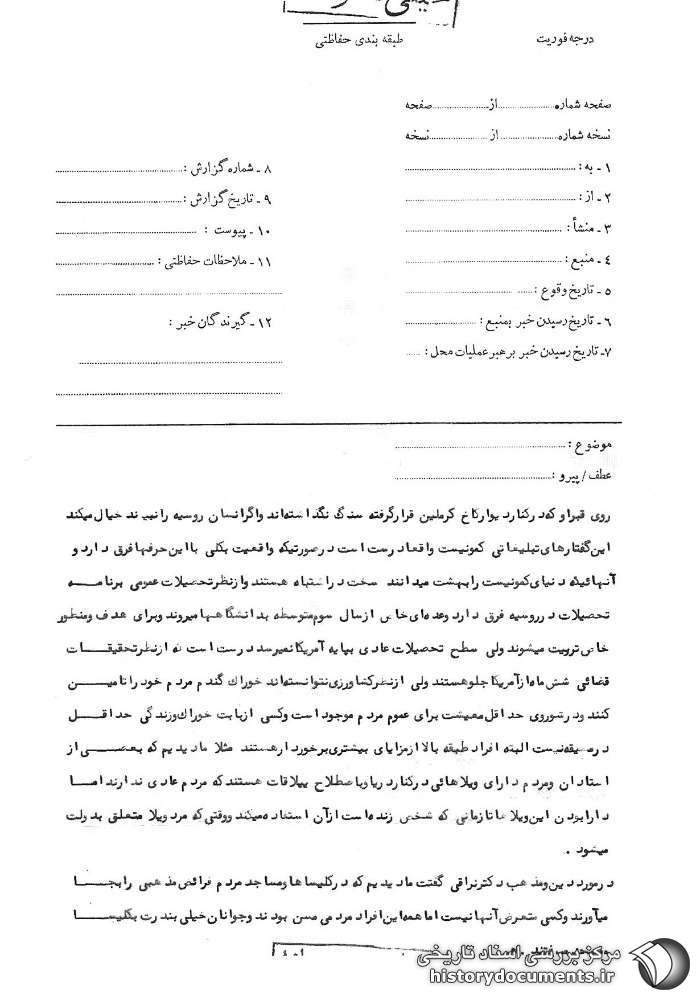 درجه فوریت
طبقه بندی حفاظتی
صفحه شماره ............ از ............ صفحه
نسخه شماره ............ از ............ نسخه
۱ - به :
۲ - از :
۳ - منشأ :
۴ - منبع :
۵ - تاریخ وقوع :
۶ - تاریخ رسیدن خبر بمنبع :
۷ - تاریخ رسیدن خبر برهبر عملیات محل :
۸ - شماره گزارش :
۹ - تاریخ گزارش :
۱۰ - پیوست :
۱۱ - ملاحظات حفاظتی :
۱۲ - گیرندگان خبر :
موضوع :
عطف / پیرو :
روی قبر او که در کنار دیوار کاخ کرملین قرار گرفته سنگ نگذاشته‌اند و اگر انسان روسیه را نبیند خیال میکند
این گفتارهای تبلیغاتی کمونیست واقعا درست است در صورتیکه واقعیت بکلی با این حرفها فرق دارد و
آنهائیکه دنیای کمونیست را بهشت میدانند سخت در اشتباه هستند و از نظر تحصیلات عمومی برنامه
تحصیلات در روسیه فرق دارد و عده‌ای خاص از سال سوم متوسطه بدانشگاهها میروند و برای هدف و منظور
خاص تربیت میشوند ولی سطح تحصیلات عادی بپایه آمریکا نمیرسد درست است که از نظر تحقیقات
فضائی شش ماه از آمریکا جلو هستند ولی از نظر کشاورزی نتوانسته‌اند خوراک گندم مردم خود را تامین
کنند و در شوروی حداقل معیشت برای عموم مردم موجود است و کسی از بابت خوراک و زندگی حداقل
در مضیقه نیست البته افراد طبقه بالا از مزایای بیشتری برخوردار هستند مثلا ما دیدیم که بعضی از
استادان و مردم دارای ویلاهائی در کنار دریا و باصطلاح ییلاقات هستند که مردم عادی ندارند اما
دارا بودن این ویلاها تا زمانی که شخص زنده است از آن استفاده میکند و وقتی که مرد ویلا متعلق بدولت
میشود .
در مورد دین و مذهب دکتر نراقی گفت ما دیدیم که در کلیساها و مساجد مردم فرائض مذهبی را بجا
میآورند و کسی متعرض آنها نیست اما همه این افراد مردمی مسن بودند و جوانان خیلی بندرت بکلیسا
مرکز بررسی اسناد تاریخی
historydocuments.ir